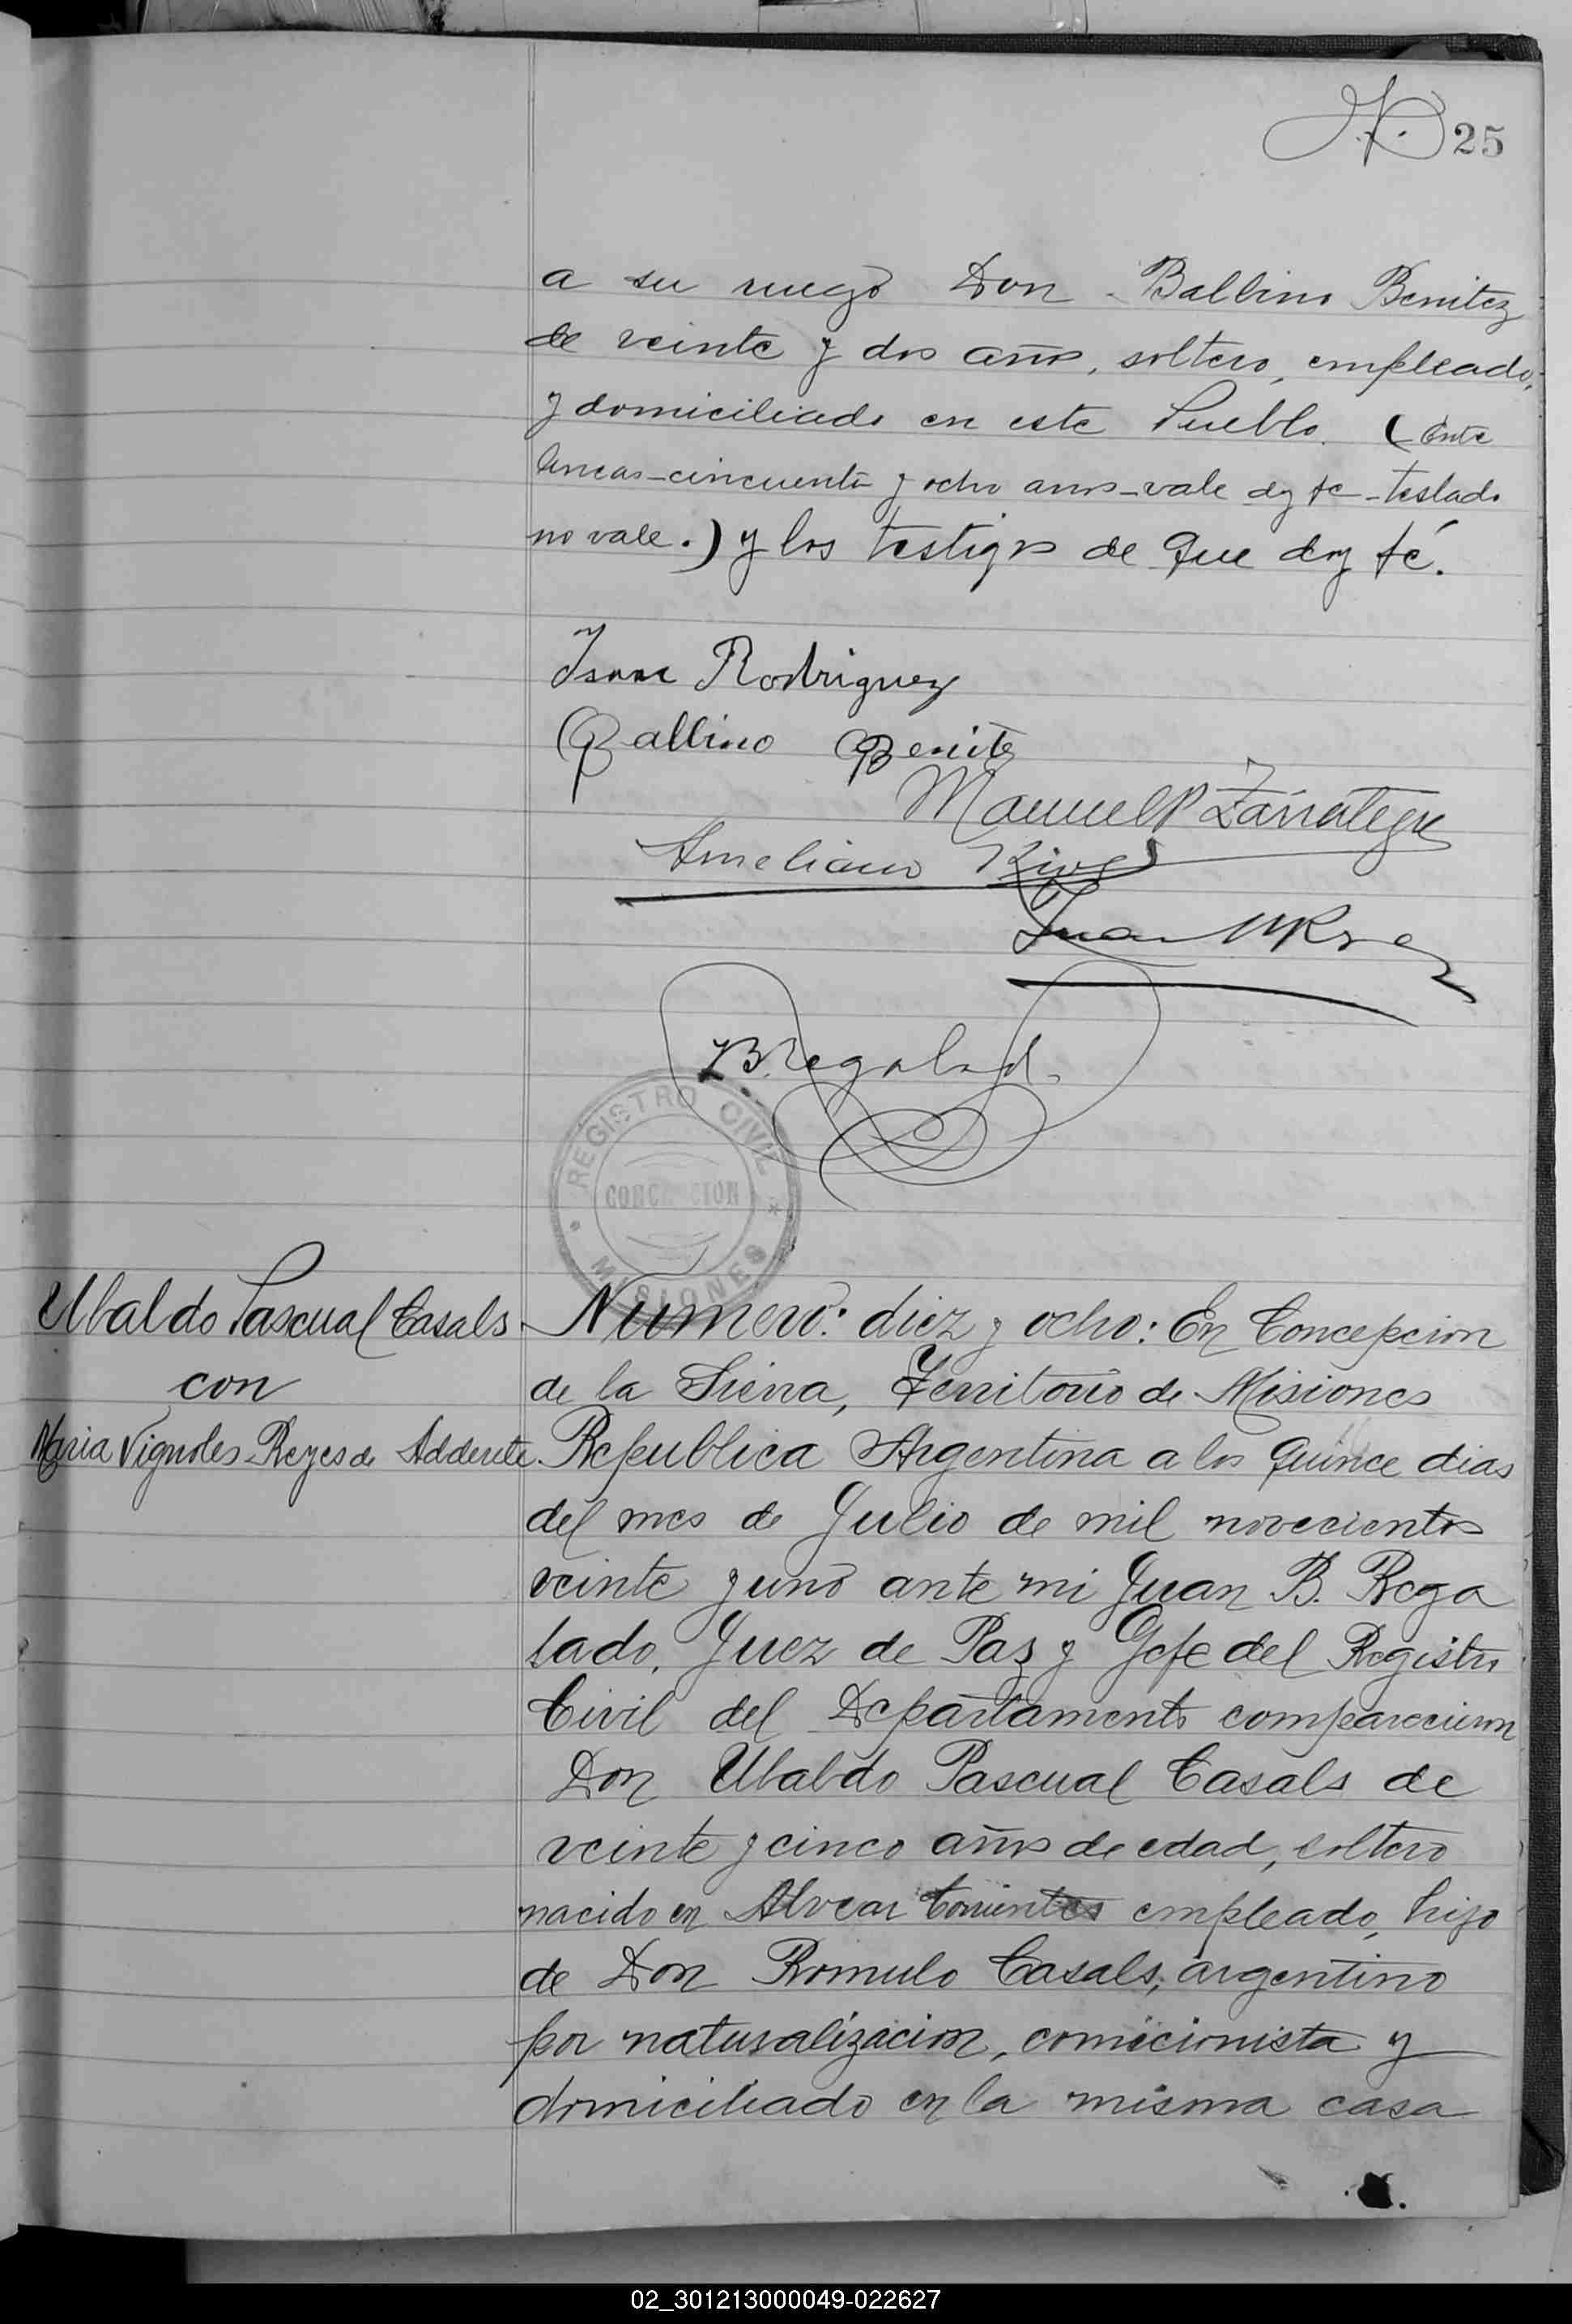 25
a su ruego Don Balbino Benitez
de veinte y dos años, soltero, empleado,
y domiciliado en este Pueblo. (Ente
lineas-cincuenta y ocho años-vale doy fe-testado
no vale.) y los testigos de que doy fé.
Rodriguez
Balbino Benite
Manuel P Zarrategu
Ameliano
Juan
B Regalad
REGISTRO CIVIL
CONCEPCION
MISIONES
Ubaldo Pascual Casals
con
Maria Vignoles Reyes de Adderete
Numero: diez y ocho: En Concepcion
de la Sierra, Territorio de Misiones
Republica Argentina a los quince dias
del mes de Julio de mil novecientos
veinte y uno ante mi Juan B. Rega
lado, Juez de Paz y Gefe del Registro
Civil del Departamento comparecieron
Don Ubaldo Pascual Casals de
veinte y cinco años de edad, soltero
nacido en Alvear Corrientes empleado, hijo
de Don Romulo Casals, argentino
por naturalizacion, comicionista y
domiciliado en la misma casa
02_301213000049-022627